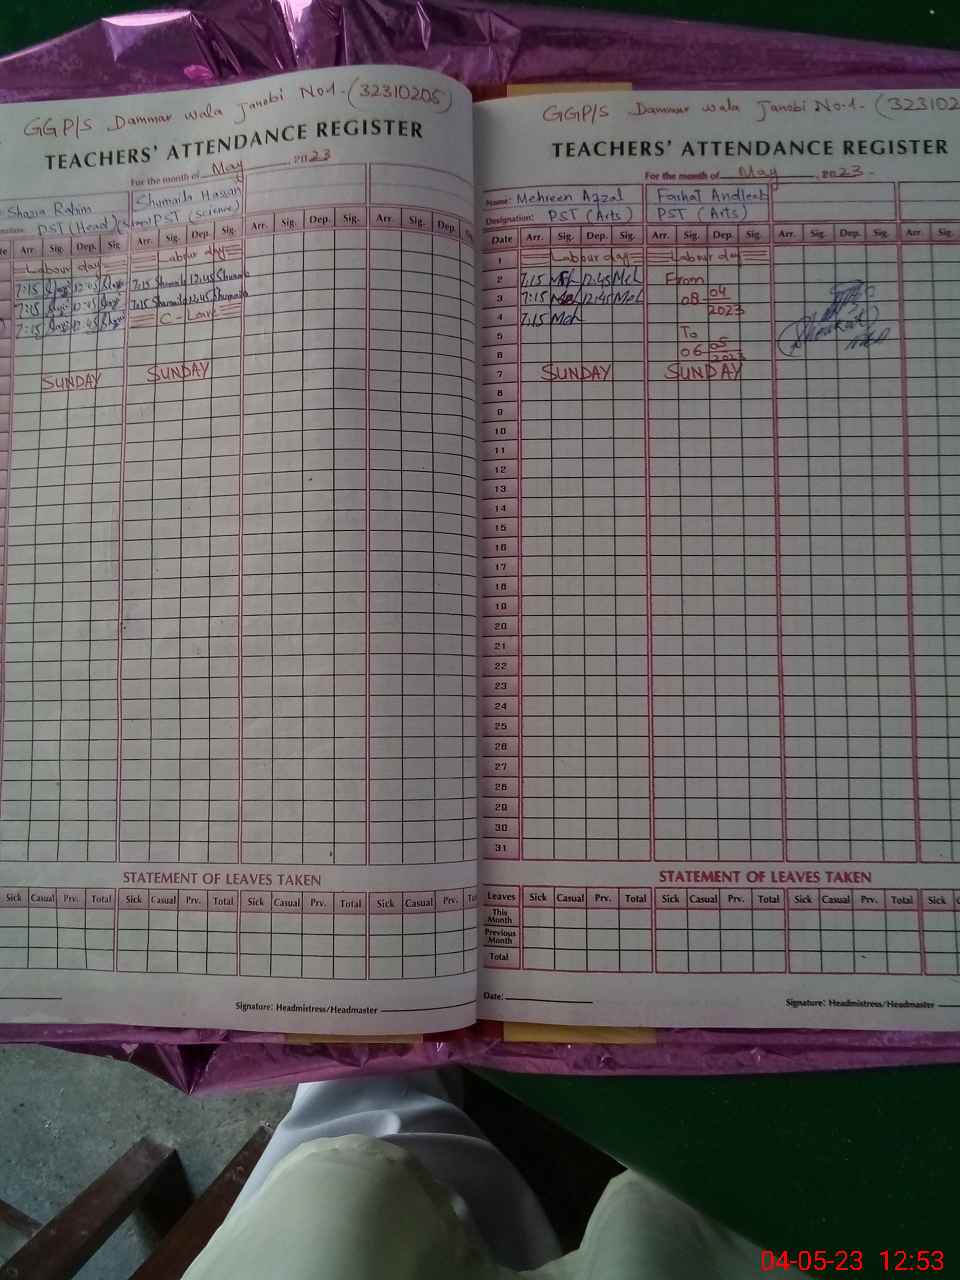 GGP/S Dammar wala Janobi No1-(32310205)
TEACHERS' ATTENDANCE REGISTER
For the month of May, 2023
Shazia Rahim Shumaila Hassan
PST (Head) PST (Science)
Arr. Sig. Dep. Sig Arr. Sig. Dep. Sig. Arr. Sig. Dep. Sig. Arr. Sig. Dep.
Labour day Labour day
7:15 12:45 7:15 Shumaila 12:45 Shumaila
7:15 12:45 7:15 Shumaila 12:45 Shumaila
7:15 12:45 C-Leave
SUNDAY SUNDAY
STATEMENT OF LEAVES TAKEN
Sick Casual Prv. Total Sick Casual Prv. Total Sick Casual Prv. Total Sick Casual Prv.
Signature: Headmistress/Headmaster
GGP/S Dammar wala Janobi No.1- (323102
TEACHERS' ATTENDANCE REGISTER
For the month of May, 2023-
Name: Mehreen Afzal Farhat Andleeb
Designation: PST (Arts) PST (Arts)
Date Arr. Sig. Dep. Sig. Arr. Sig. Dep. Sig. Arr. Sig. Dep. Sig. Arr. Sig.
1 Labour day Labour day
2 7:15 Meh 12:45 Meh From
3 7:15 Meh 12:45 Meh 08 04
4 7:15 Meh 2023
5 To
6 06 05 2023
7 SUNDAY SUNDAY
8
9
10
11
12
13
14
15
16
17
18
19
20
21
22
23
24
25
26
27
28
29
30
31
STATEMENT OF LEAVES TAKEN
Leaves Sick Casual Prv. Total Sick Casual Prv. Total Sick Casual Prv. Total Sick
This Month
Previous Month
Total
Date:
Signature: Headmistress/Headmaster
04-05-23 12:53